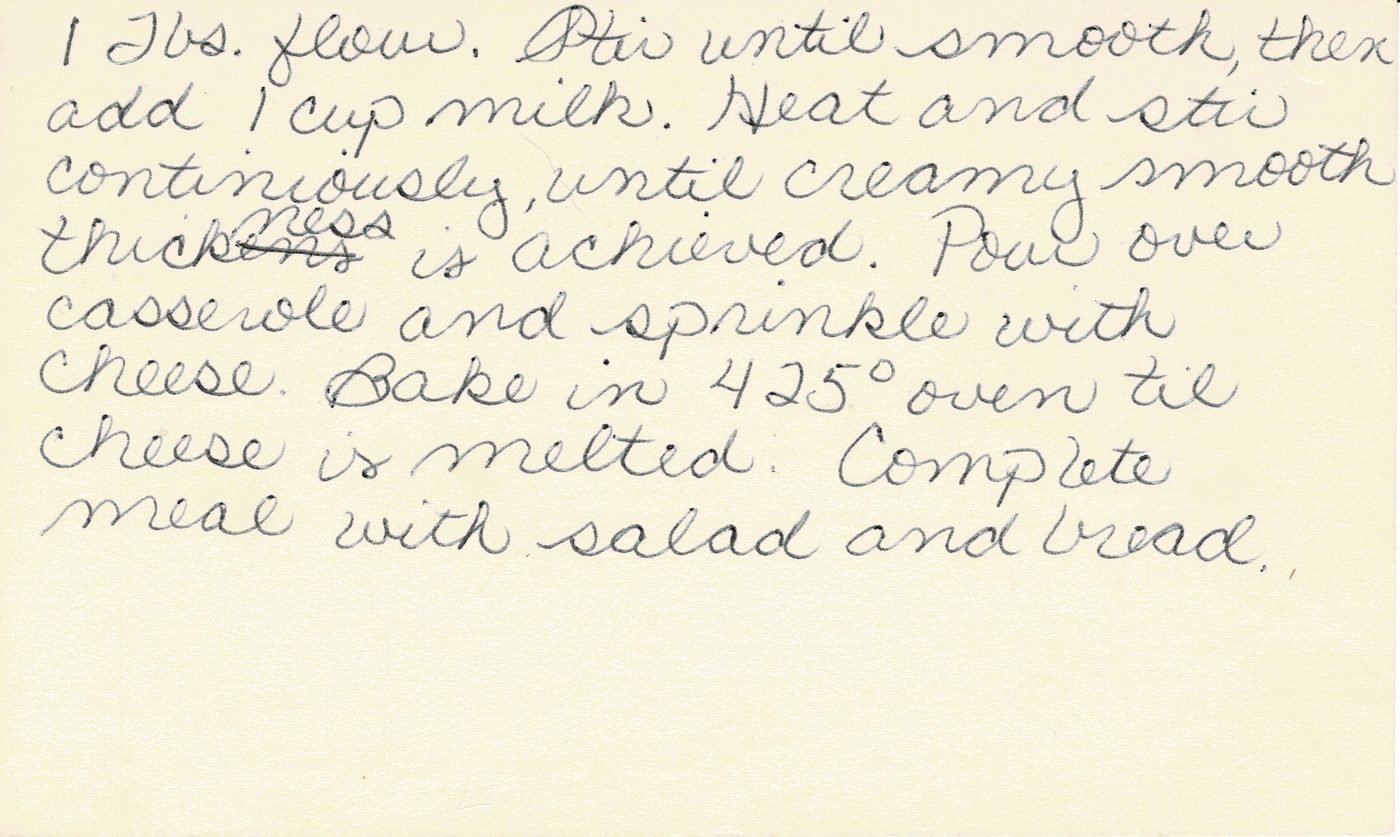 1 Tbs. flour. Stir until smooth, then
add 1 cup milk. Heat and stir
continiously, until creamy smooth
thickness is achieved. Pour over
casserole and sprinkle with
cheese. Bake in 425° oven til
cheese is melted. Complete
meal with salad and bread.